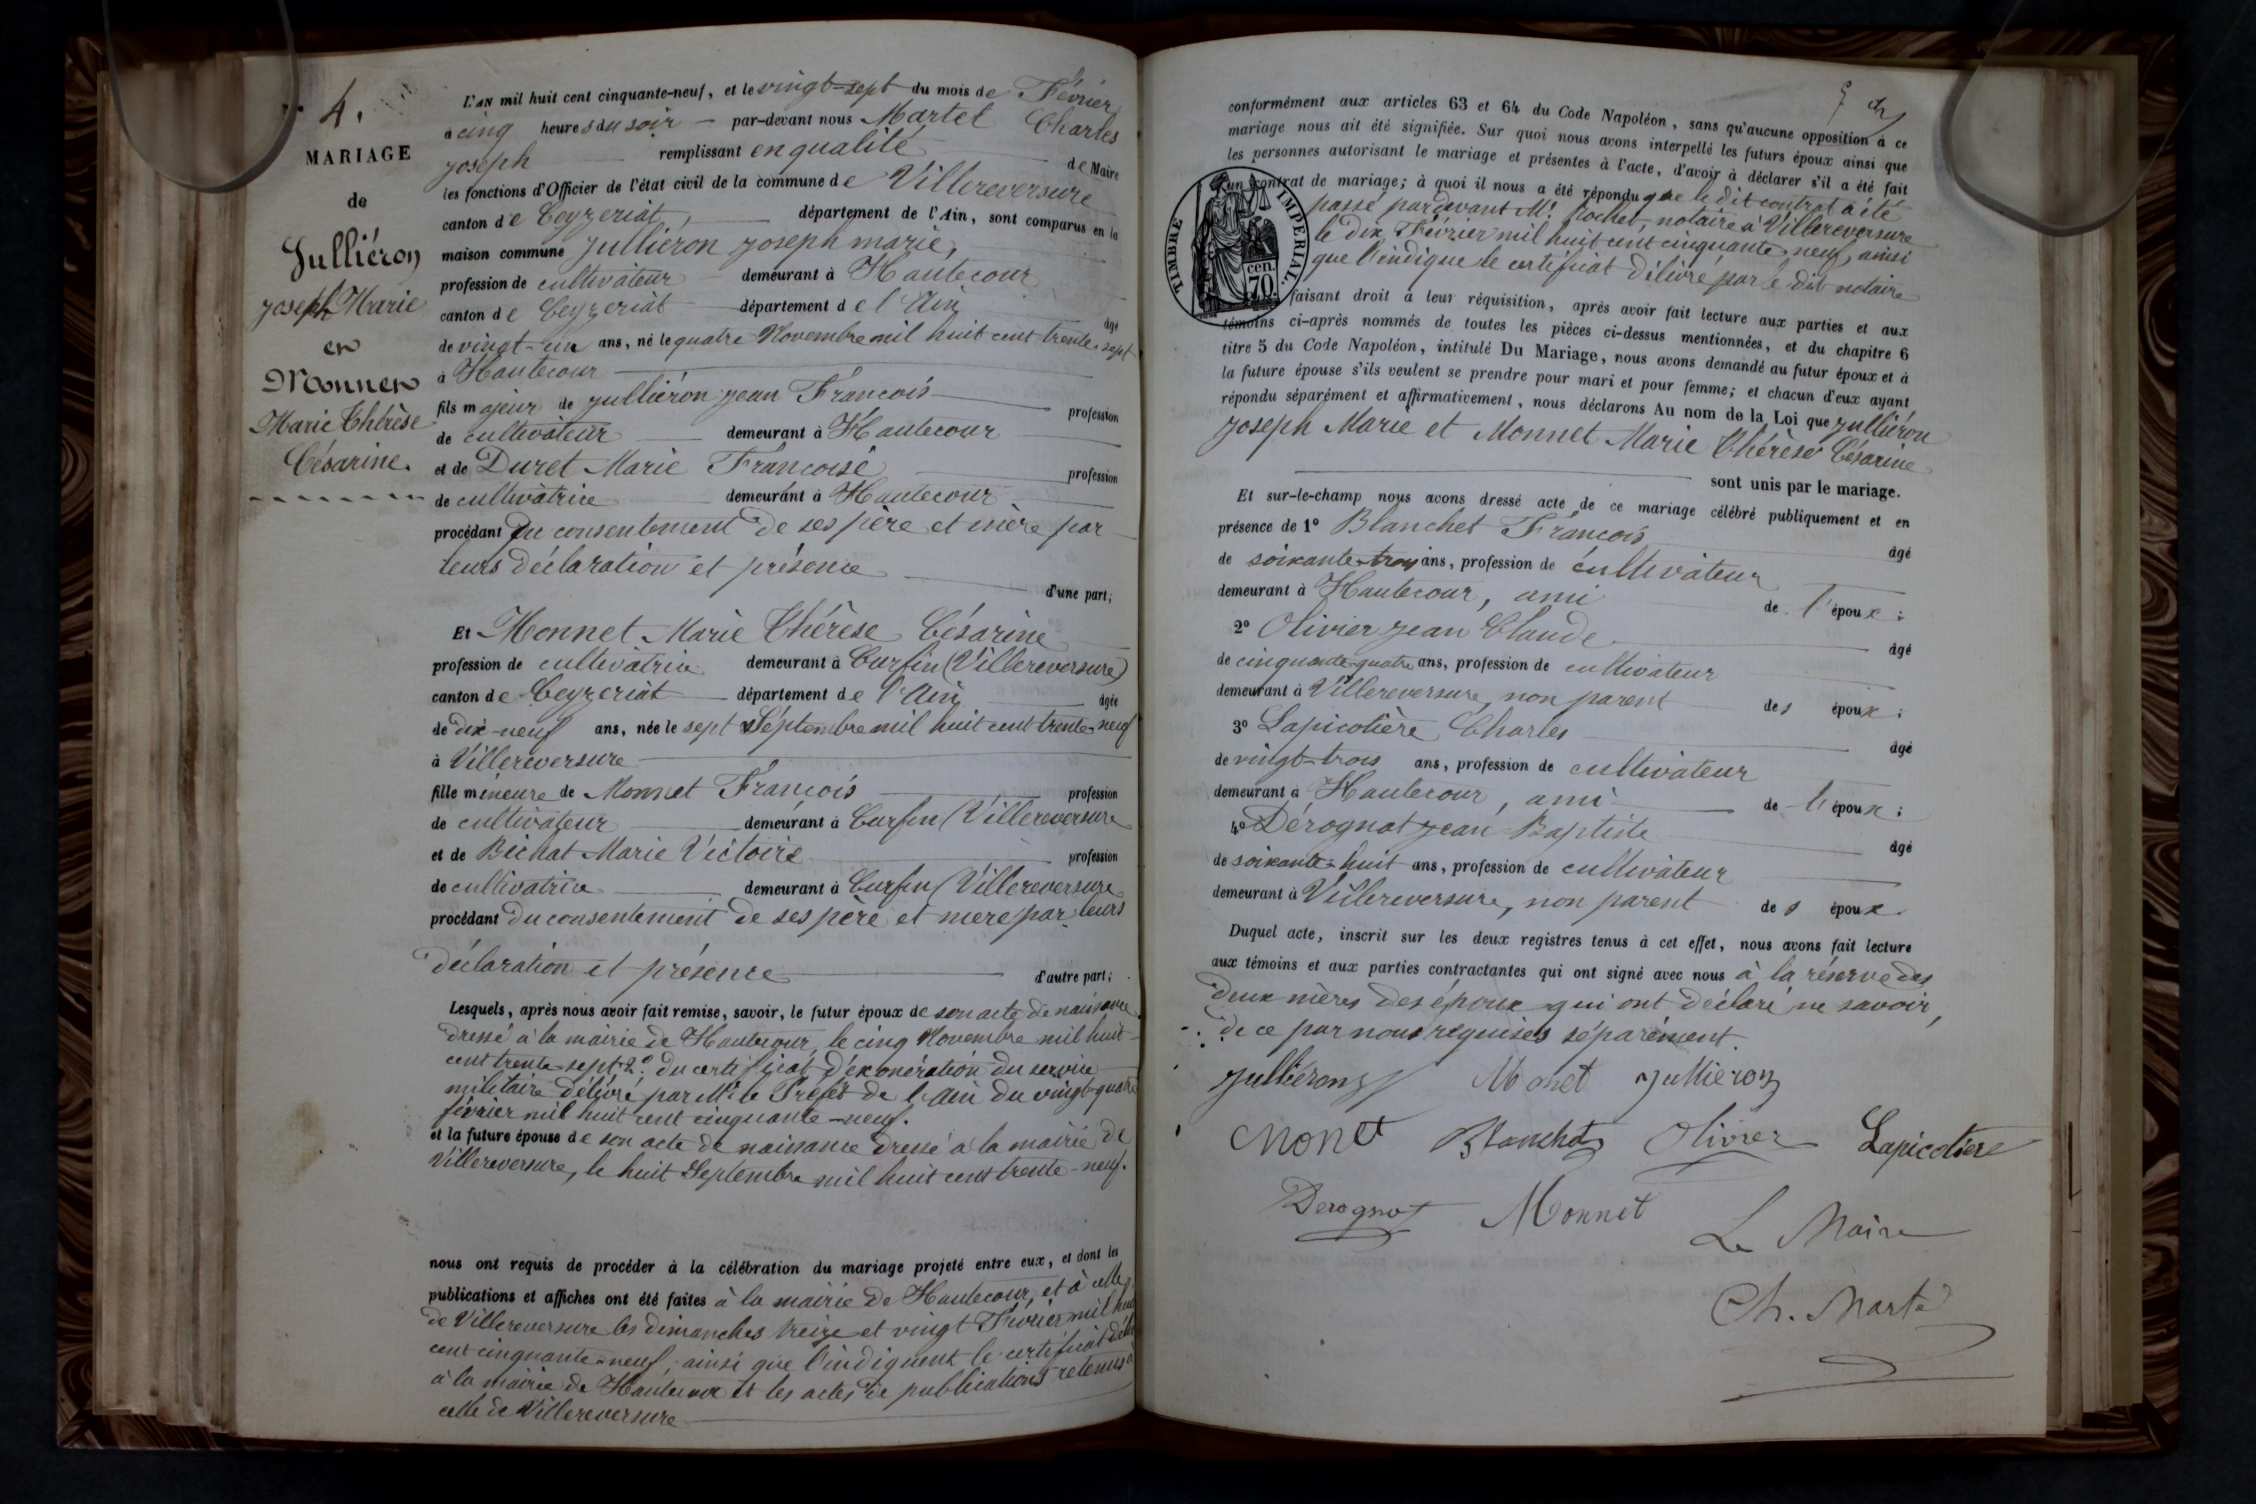 4.
MARIAGE
de
Julliéron
Joseph Marie
et
Monnet
Marie Thérèse
Césarine.
L'AN mil huit cent cinquante-neuf, et le vingt-sept du mois de Février
à cinq heures du soir par-devant nous Martel Charles
Joseph remplissant en qualité de Maire
les fonctions d'Officier de l'état civil de la commune de Villereversure
canton de Ceyzeriat, département de l'Ain, sont comparus en la
maison commune Julliéron Joseph marie,
profession de cultivateur demeurant à Hautecour
canton de Ceyzeriat département de l'Ain âgé
de vingt-un ans, né le quatre Novembre mil huit cent trente-sept
à Hautecour
fils majeur de Julliéron Jean François profession
de cultivateur demeurant à Hautecour
et de Duret Marie Françoise profession
de cultivatrice demeurant à Hautecour
procédant du consentement de ses père et mère par
leurs déclaration et présence d'une part;
Et Monnet Marie Thérèse Césarine
profession de cultivatrice demeurant à Curfin (Villereversure)
canton de Ceyzeriat département de l'Ain âgée
de dix-neuf ans, née le sept Septembre mil huit cent trente-neuf
à Villereversure
fille mineure de Monnet François profession
de cultivateur demeurant à Curfin (Villereversure
et de Bichat Marie Victoire profession
de cultivatrice demeurant à Curfin (Villereversure
procédant du consentement de ses père et mere par leurs
déclaration et présence d'autre part;
Lesquels, après nous avoir fait remise, savoir, le futur époux de son acte de naissance
dressé à la mairie de Hautecour, le cinq Novembre mil huit
cent trente-sept 2º. du certificat d'éxonération du service
militaire délivré par Mr. le Préfet de l'Ain du vingt-quatre
février mil huit cent cinquante-neuf.
et la future épouse de son acte de naissance dressé à la mairie de
Villereversure, le huit Septembre mil huit cent trente-neuf.
nous ont requis de procéder à la célébration du mariage projeté entre eux, et dont les
publications et affiches ont été faites à la mairie de Hautecour, et à celle
de Villereversure les dimanches treize et vingt Février mil huit
cent cinquante-neuf, ainsi que l'indiquent le certificat
à la mairie de Hautecour et les actes de publications retenus à
celle de Villereversure
conformément aux articles 63 et 64 du Code Napoléon, sans qu'aucune opposition à ce
mariage nous ait été signifiée. Sur quoi nous avons interpellé les futurs époux ainsi que
les personnes autorisant le mariage et présentes à l'acte, d'avoir à déclarer s'il a été fait
un contrat de mariage; à quoi il nous a été répondu que le dit contrat a été
passé pardevant Mr. Rochet, notaire à Villereversure
le dix Février mil huit cent cinquante-neuf, ainsi
que l'indique le certificat délivré par le dit notaire
TIMBRE IMPERIAL.
70 cen.
faisant droit à leur réquisition, après avoir fait lecture aux parties et aux
témoins ci-après nommés de toutes les pièces ci-dessus mentionnées, et du chapitre 6
titre 5 du Code Napoléon, intitulé Du Mariage, nous avons demandé au futur époux et à
la future épouse s'ils veulent se prendre pour mari et pour femme; et chacun d'eux ayant
répondu séparément et affirmativement, nous déclarons Au nom de la Loi que Julliéron
Joseph Marie et Monnet Marie Thérèse Césarine
sont unis par le mariage.
Et sur-le-champ nous avons dressé acte de ce mariage célébré publiquement et en
présence de 1º Blanchet François âgé
de soixante-trois ans, profession de cultivateur
demeurant à Hautecour, ami de l'époux;
2º Olivier Jean Claude âgé
de cinquante-quatre ans, profession de cultivateur
demeurant à Villereversure, non parent des époux;
3º Lapicotière Charles âgé
de vingt-trois ans, profession de cultivateur
demeurant à Hautecour, ami de l'époux;
4º Dérognat Jean Baptiste âgé
de soixante-huit ans, profession de cultivateur
demeurant à Villereversure, non parent des époux.
Duquel acte, inscrit sur les deux registres tenus à cet effet, nous avons fait lecture
aux témoins et aux parties contractantes qui ont signé avec nous à la réserve des
deux mères des époux qui ont déclaré ne savoir,
de ce par nous requises séparément.
Julliéron Monet Julliéron
Monet Blanchet Olivier Lapicotiere
Derognat Monnet
Le Maire
Ch. Martel